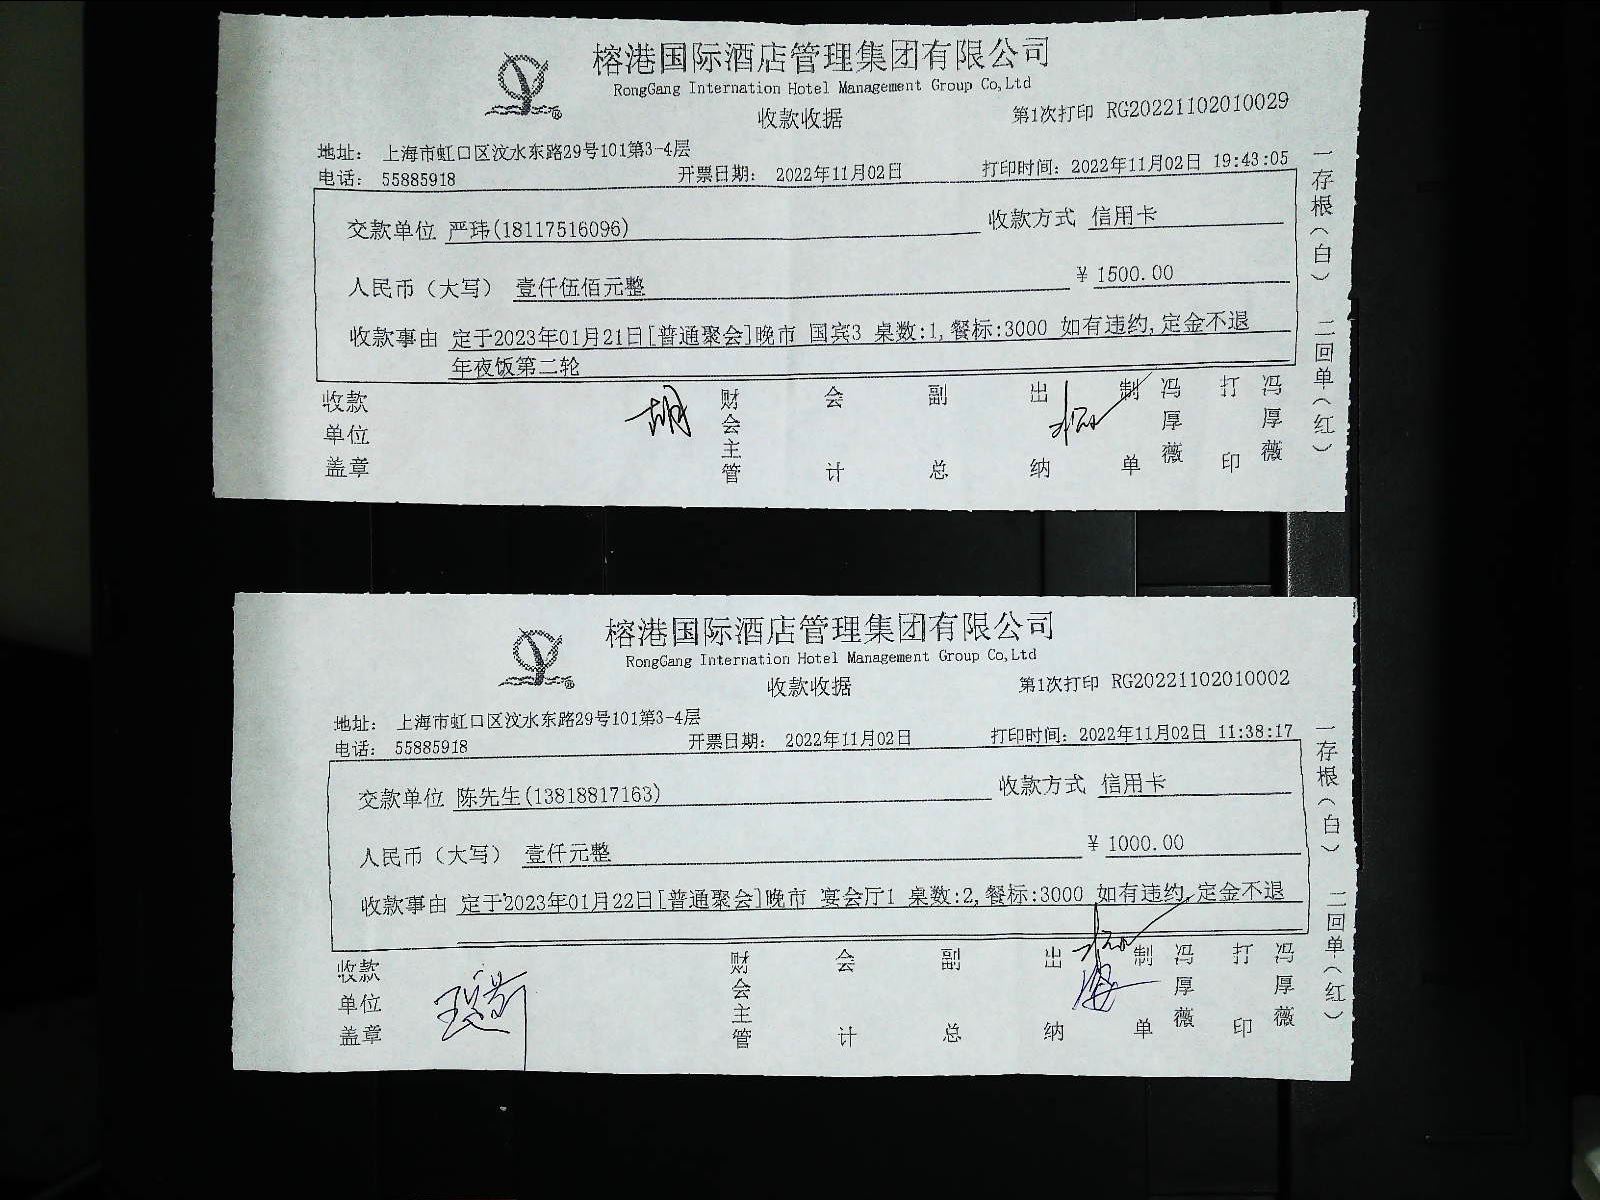 榕港国际酒店管理集团有限公司
RongGang Internation Hotel Management Group Co,Ltd
收款收据
第1次打印 RG20221102010029
地址: 上海市虹口区汶水东路29号101第3-4层
电话: 55885918 开票日期: 2022年11月02日 打印时间: 2022年11月02日 19:43:05
交款单位 严玮(18117516096) 收款方式 信用卡
人民币（大写） 壹仟伍佰元整 ¥ 1500.00
收款事由 定于2023年01月21日[普通聚会]晚市 国宾3 桌数:1,餐标:3000 如有违约,定金不退
年夜饭第二轮
收款单位盖章 财会主管 会计 副总 出纳 制单 冯厚薇 打印 冯厚薇
一存根（白） 二回单（红）
榕港国际酒店管理集团有限公司
RongGang Internation Hotel Management Group Co,Ltd
收款收据
第1次打印 RG20221102010002
地址: 上海市虹口区汶水东路29号101第3-4层
电话: 55885918 开票日期: 2022年11月02日 打印时间: 2022年11月02日 11:38:17
交款单位 陈先生(13818817163) 收款方式 信用卡
人民币（大写） 壹仟元整 ¥ 1000.00
收款事由 定于2023年01月22日[普通聚会]晚市 宴会厅1 桌数:2,餐标:3000 如有违约,定金不退
收款单位盖章 财会主管 会计 副总 出纳 制单 冯厚薇 打印 冯厚薇
一存根（白） 二回单（红）